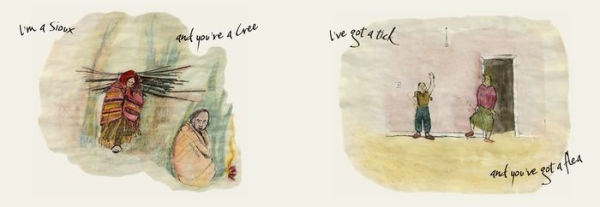 I'm a Sioux
and you're a Cree
I've got a tick
and you've got a flea